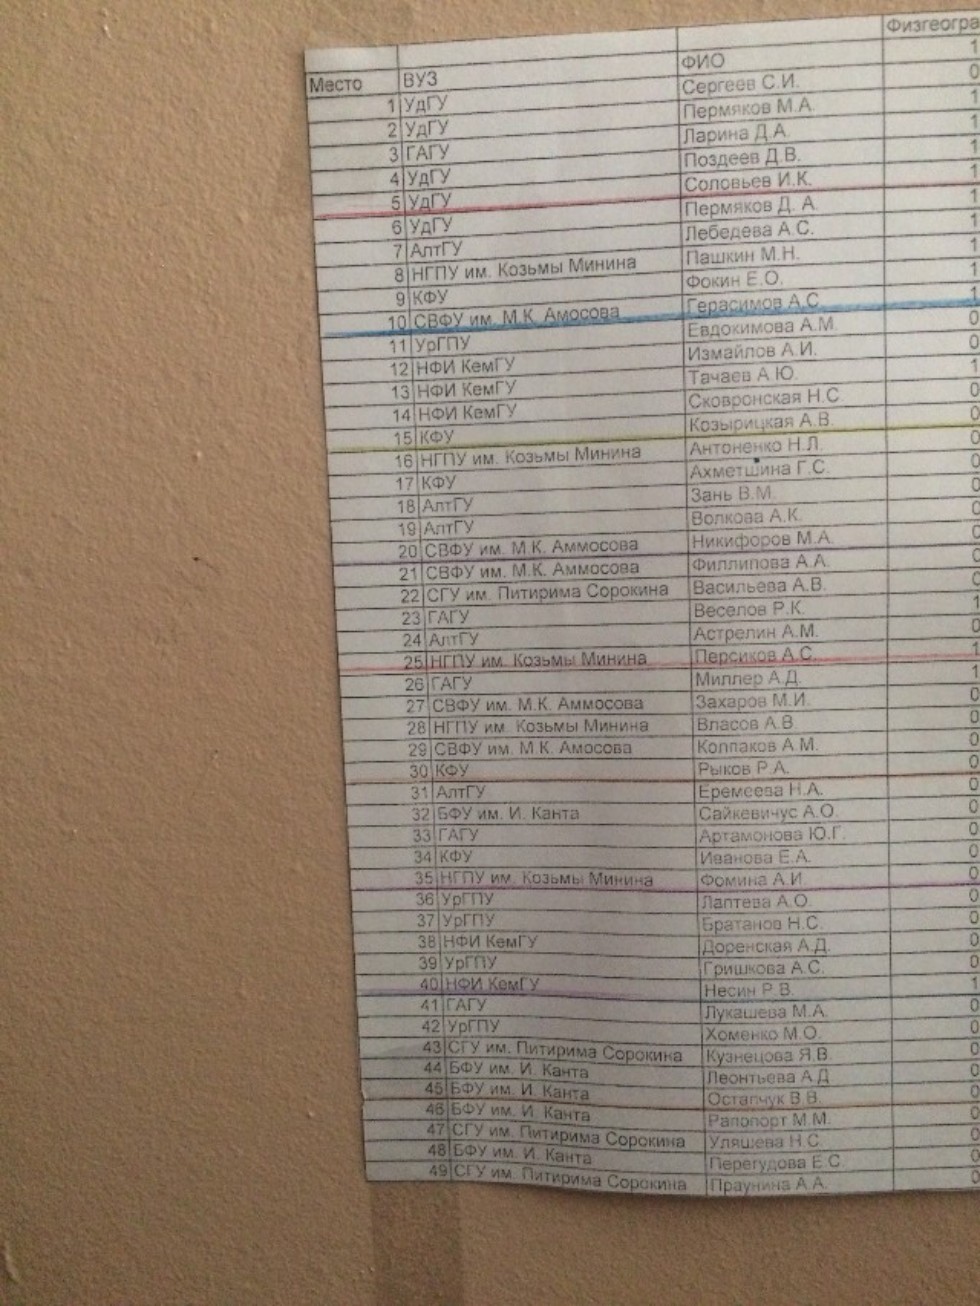 Физгеогра
Место ВУЗ ФИО 1
1 УдГУ Сергеев С.И. 0
2 УдГУ Пермяков М.А. 1
3 ГАГУ Ларина Д.А. 1
4 УдГУ Поздеев Д.В. 1
5 УдГУ Соловьев И.К. 1
6 УдГУ Пермяков Д. А. 1
7 АлтГУ Лебедева А.С. 1
8 НГПУ им. Козьмы Минина Пашкин М.Н. 1
9 КФУ Фокин Е.О. 1
10 СВФУ им. М.К. Амосова Герасимов А.С 1
11 УрГПУ Евдокимова А.М. 0
12 НФИ КемГУ Измайлов А.И. 0
13 НФИ КемГУ Тачаев А.Ю. 1
14 НФИ КемГУ Сковронская Н.С. 0
15 КФУ Козырицкая А.В. 0
16 НГПУ им. Козьмы Минина Антоненко Н.Л. 0
17 КФУ Ахметшина Г.С. 0
18 АлтГУ Зань В.М. 0
19 АлтГУ Волкова А.К. 0
20 СВФУ им. М.К. Аммосова Никифоров М.А. 0
21 СВФУ им. М.К. Аммосова Филлипова А.А. 0
22 СГУ им. Питирима Сорокина Васильева А.В. 0
23 ГАГУ Веселов Р.К. 1
24 АлтГУ Астрелин А.М. 0
25 НГПУ им. Козьмы Минина Персиков А.С. 1
26 ГАГУ Миллер А.Д. 1
27 СВФУ им. М.К. Аммосова Захаров М.И. 0
28 НГПУ им. Козьмы Минина Власов А.В. 0
29 СВФУ им. М.К. Амосова Колпаков А.М. 0
30 КФУ Рыков Р.А. 0
31 АлтГУ Еремеева Н.А. 0
32 БФУ им. И. Канта Сайкевичус А.О. 0
33 ГАГУ Артамонова Ю.Г. 0
34 КФУ Иванова Е.А. 0
35 НГПУ им. Козьмы Минина Фомина А.И. 0
36 УрГПУ Лаптева А.О. 0
37 УрГПУ Братанов Н.С. 0
38 НФИ КемГУ Доренская А.Д. 0
39 УрГПУ Гришкова А.С. 0
40 НФИ КемГУ Несин Р.В. 1
41 ГАГУ Лукашева М.А. 0
42 УрГПУ Хоменко М.О. 0
43 СГУ им. Питирима Сорокина Кузнецова Я.В. 0
44 БФУ им. И. Канта Леонтьева А.Д 0
45 БФУ им. И. Канта Остапчук В.В. 0
46 БФУ им. И. Канта Рапопорт М.М. 0
47 СГУ им. Питирима Сорокина Уляшева Н.С. 0
48 БФУ им. И. Канта Перегудова Е.С. 0
49 СГУ им. Питирима Сорокина Праунина А.А. 0